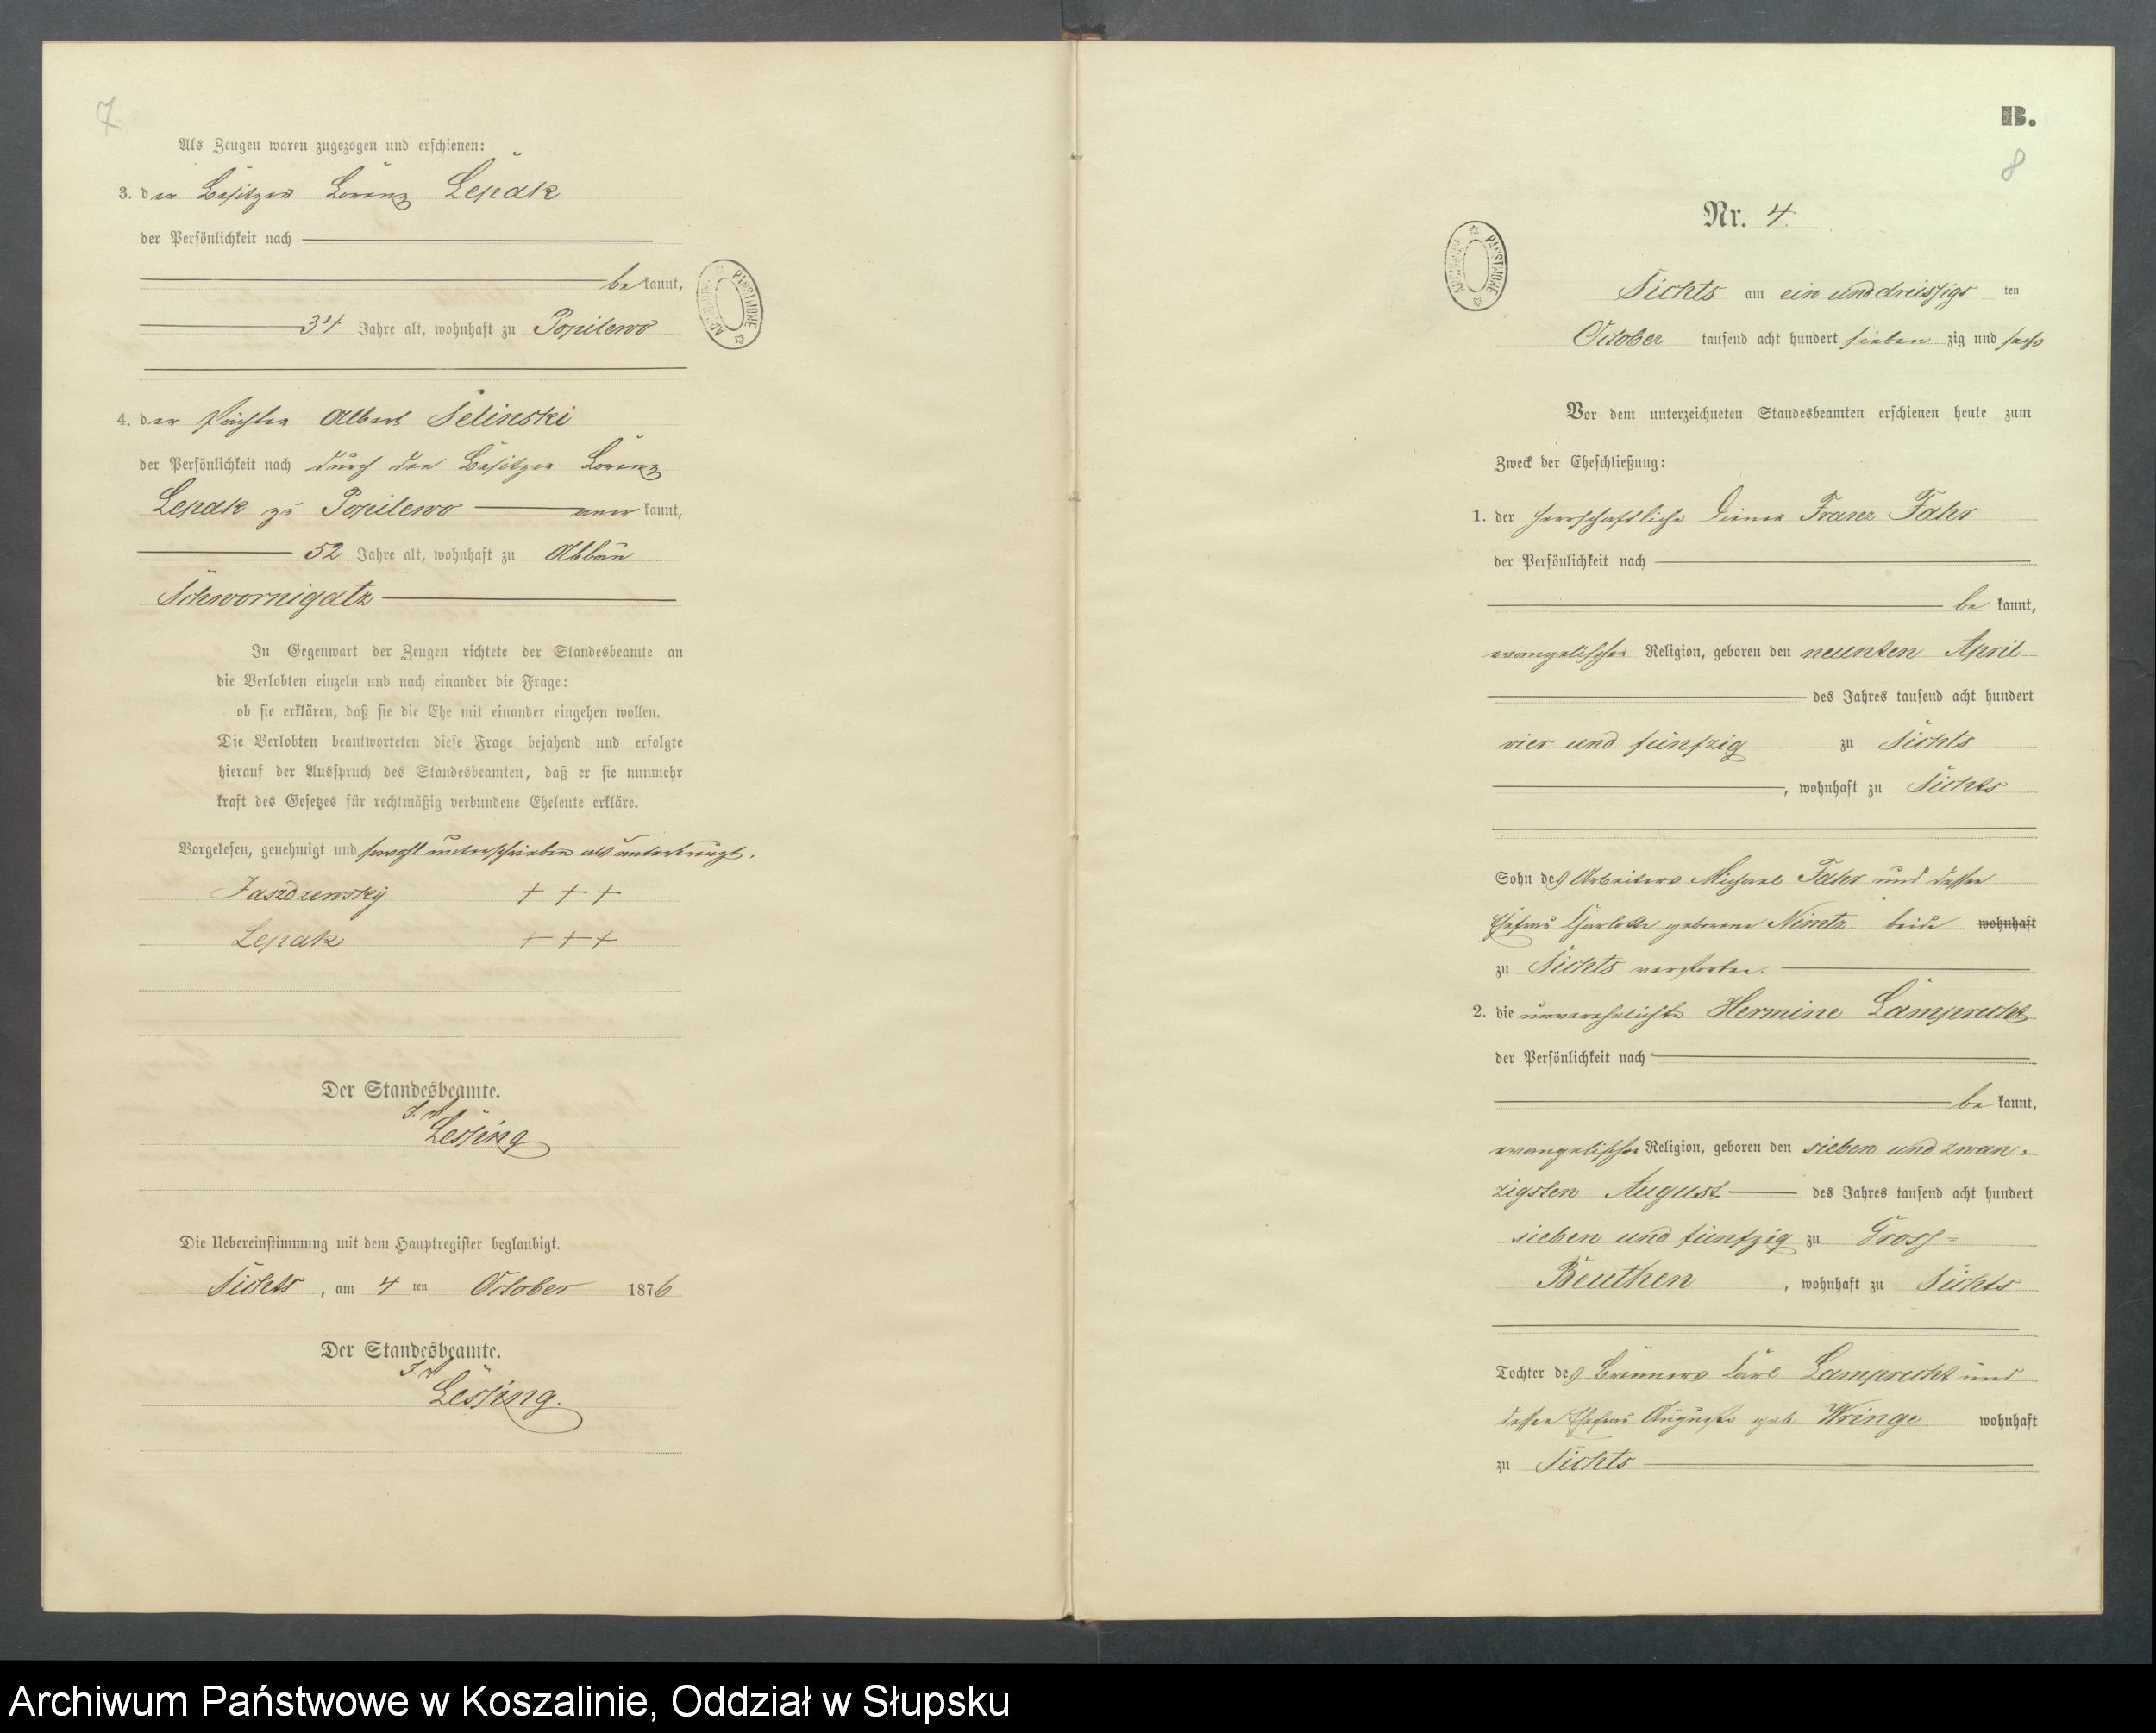 7
Als Zeugen waren zugezogen und erschienen:
3. der Besitzer Lorenz Lepak
der Persönlichkeit nach
bekannt,
34 Jahre alt, wohnhaft zu Popilewo
4. der Pächter Albert Selinski
der Persönlichkeit nach durch den Besitzer Lorenz
Lepak zu Popilewo anerkannt,
52 Jahre alt, wohnhaft zu Abbau
Schwornigatz
In Gegenwart der Zeugen richtete der Standesbeamte an
die Verlobten einzeln und nach einander die Frage:
ob sie erklären, daß sie die Ehe mit einander eingehen wollen.
Die Verlobten beantworteten diese Frage bejahend und erfolgte
hierauf der Ausspruch des Standesbeamten, daß er sie nunmehr
kraft des Gesetzes für rechtmäßig verbundene Eheleute erkläre.
Vorgelesen, genehmigt und sowohl unterschrieben als unterkreuzt.
Jaszdzewsky + + +
Lepak + + +
Der Standesbeamte.
Lessing
Die Uebereinstimmung mit dem Hauptregister beglaubigt.
Sichts, am 4 ten October 1876
Der Standesbeamte.
Lessing.
B.
8
ARCHIWUM PAŃSTWOWE
ARCHIWUM PAŃSTWOWE
Nr. 4.
Sichts am ein und dreissigs ten
October tausend acht hundert siebenzig und sechs
Vor dem unterzeichneten Standesbeamten erschienen heute zum
Zweck der Eheschließung:
1. der herrschaftliche Diener Franz Fahr
der Persönlichkeit nach
bekannt,
evangelischer Religion, geboren den neunten April
des Jahres tausend acht hundert
vier und fünfzig zu Sichts
, wohnhaft zu Sichts
Sohn des Arbeiters Michael Fahr und dessen
Ehefrau Charlotte geborene Nimtz beide wohnhaft
zu Sichts verstorben.
2. die unverehelichte Hermine Lamprecht
der Persönlichkeit nach
bekannt,
evangelischer Religion, geboren den sieben und zwan-
zigsten August des Jahres tausend acht hundert
sieben und fünfzig zu Gross-
Beuthen, wohnhaft zu Sichts
Tochter des Brenners Carl Lamprecht und
dessen Ehefrau Auguste geb. Wringe wohnhaft
zu Sichts
Archiwum Państwowe w Koszalinie, Oddział w Słupsku